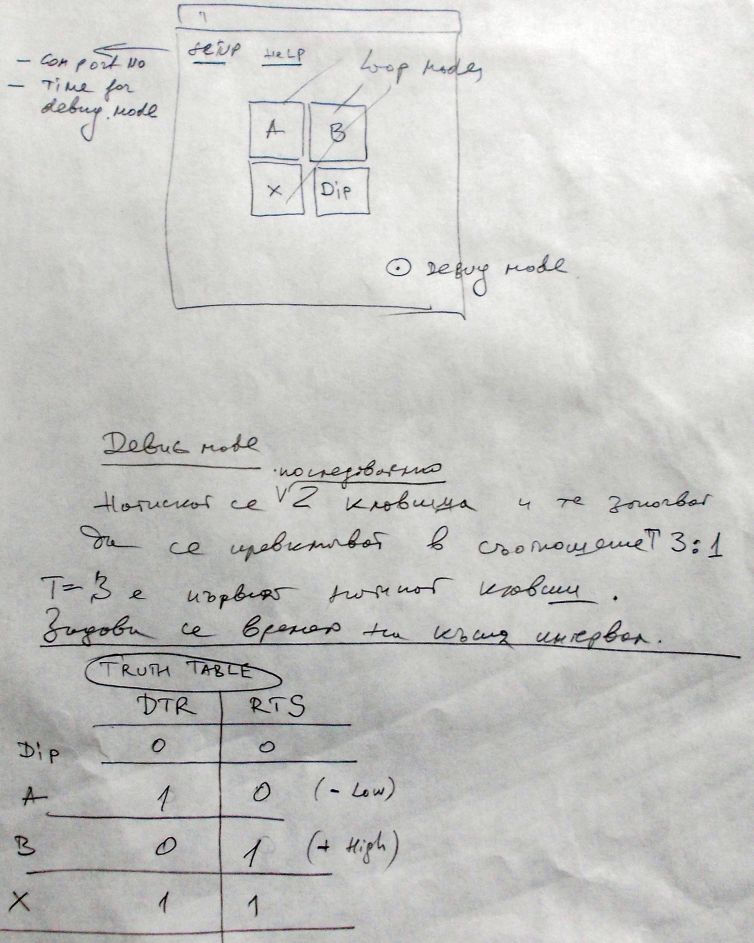 SETUP HELP
- Comport No
- Time for
debug mode
Loop modes
A B
X Dip
Debug mode
Дебъг mode
последователно
Натискат се 2 клавиша и те започват
да се превключват в съотношение T 3:1
T=3 е първият натиснат клавиш.
Задава се времето на късия интервал.
TRUTH TABLE
DTR RTS
Dip 0 0
A 1 0 (- Low)
B 0 1 (+ High)
X 1 1